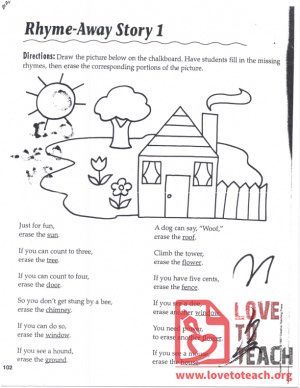 Rhyme-Away Story 1
Directions: Draw the picture below on the chalkboard. Have students fill in the missing
rhymes, then erase the corresponding portions of the picture.
Just for fun,
erase the sun.
If you can count to three,
erase the tree.
If you can count to four,
erase the door.
So you don't get stung by a bee,
erase the chimney.
If you can do so,
erase the window.
If you see a hound,
erase the ground.
A dog can say, "Woof,"
erase the roof.
Climb the tower,
erase the flower.
If you have five cents,
erase the fence.
If you see a
erase another window.
You need
to erase another flower.
If you see a mouse,
erase the house.
102
LOVE
TO
TEACH
www.lovetoteach.org